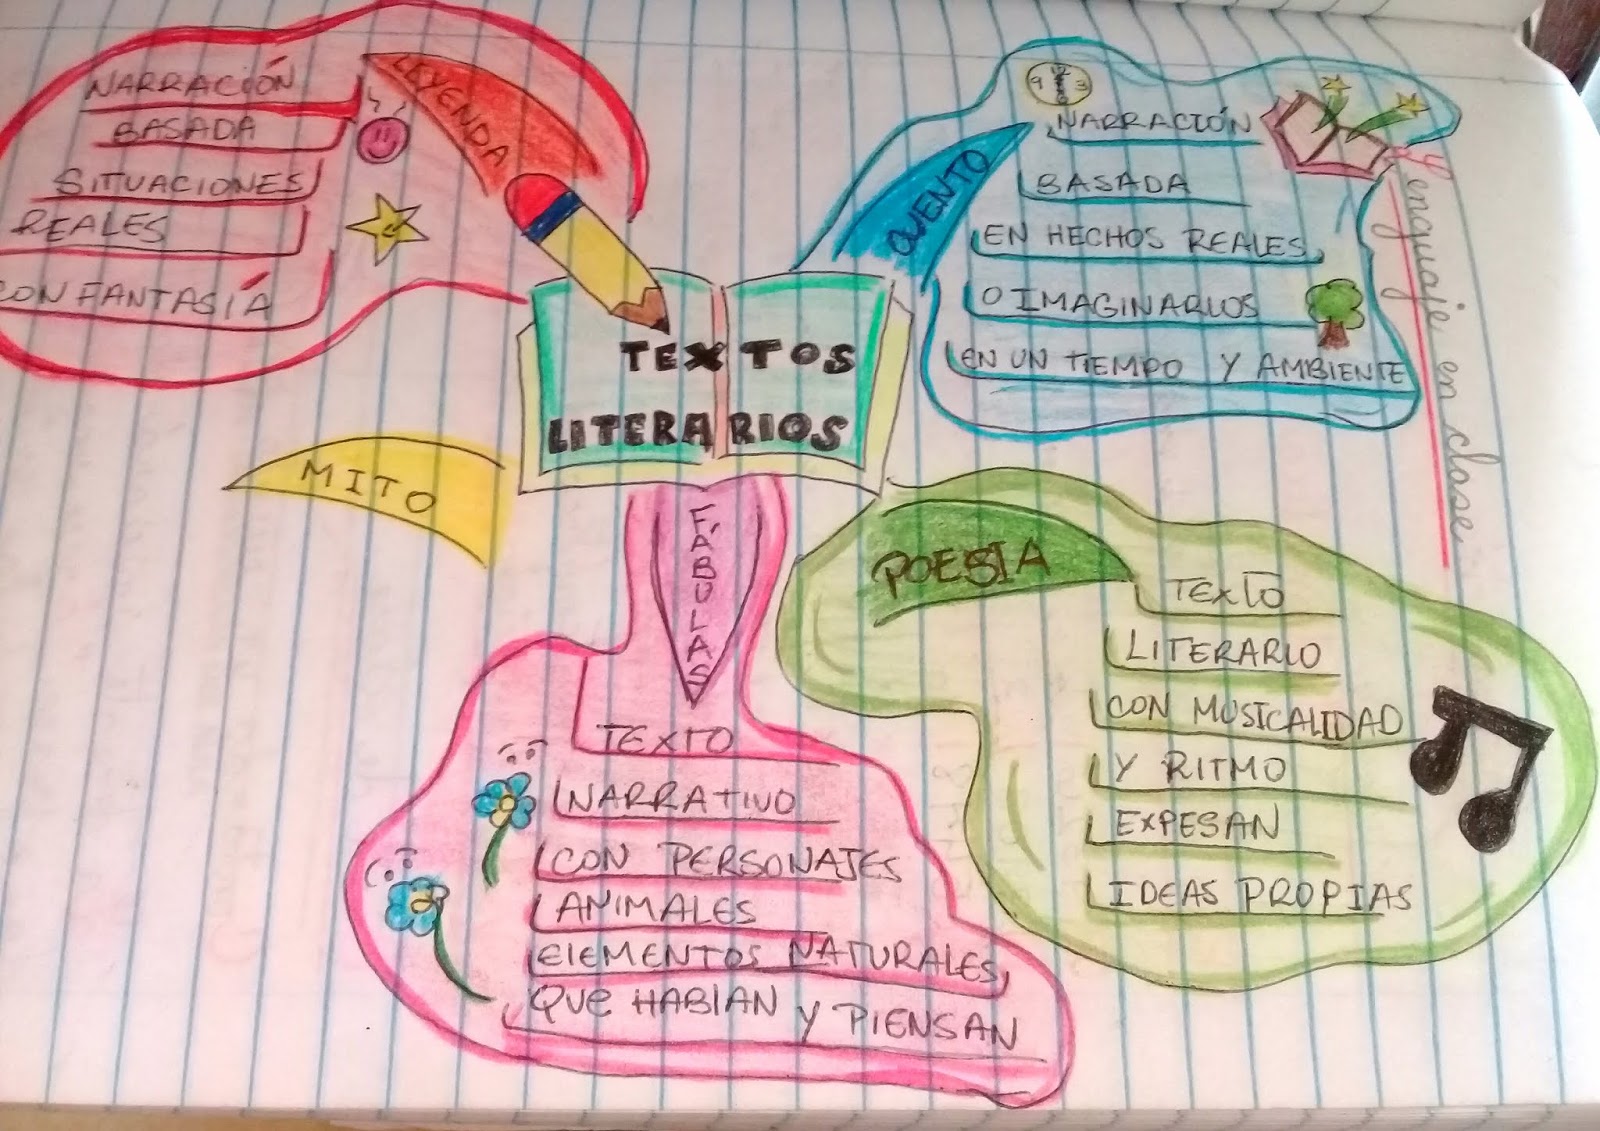 TEXTOS
LITERARIOS
LEYENDA
NARRACIÓN
BASADA
SITUACIONES
REALES
CON FANTASÍA
CUENTO
9 12 3 6
NARRACIÓN
BASADA
EN HECHOS REALES
O IMAGINARIOS
EN UN TIEMPO Y AMBIENTE
Lenguaje en clase
MITO
FÁBULAS
TEXTO
NARRATIVO
CON PERSONAJES
ANIMALES
ElEMENTOS NATURALES,
QUe HABlAN y PIENSAN
POESIA
TEXTO
LITERARIO
CON MUSICALIDAD
Y RITMO
EXPESAN
IDEAS PROPIAS